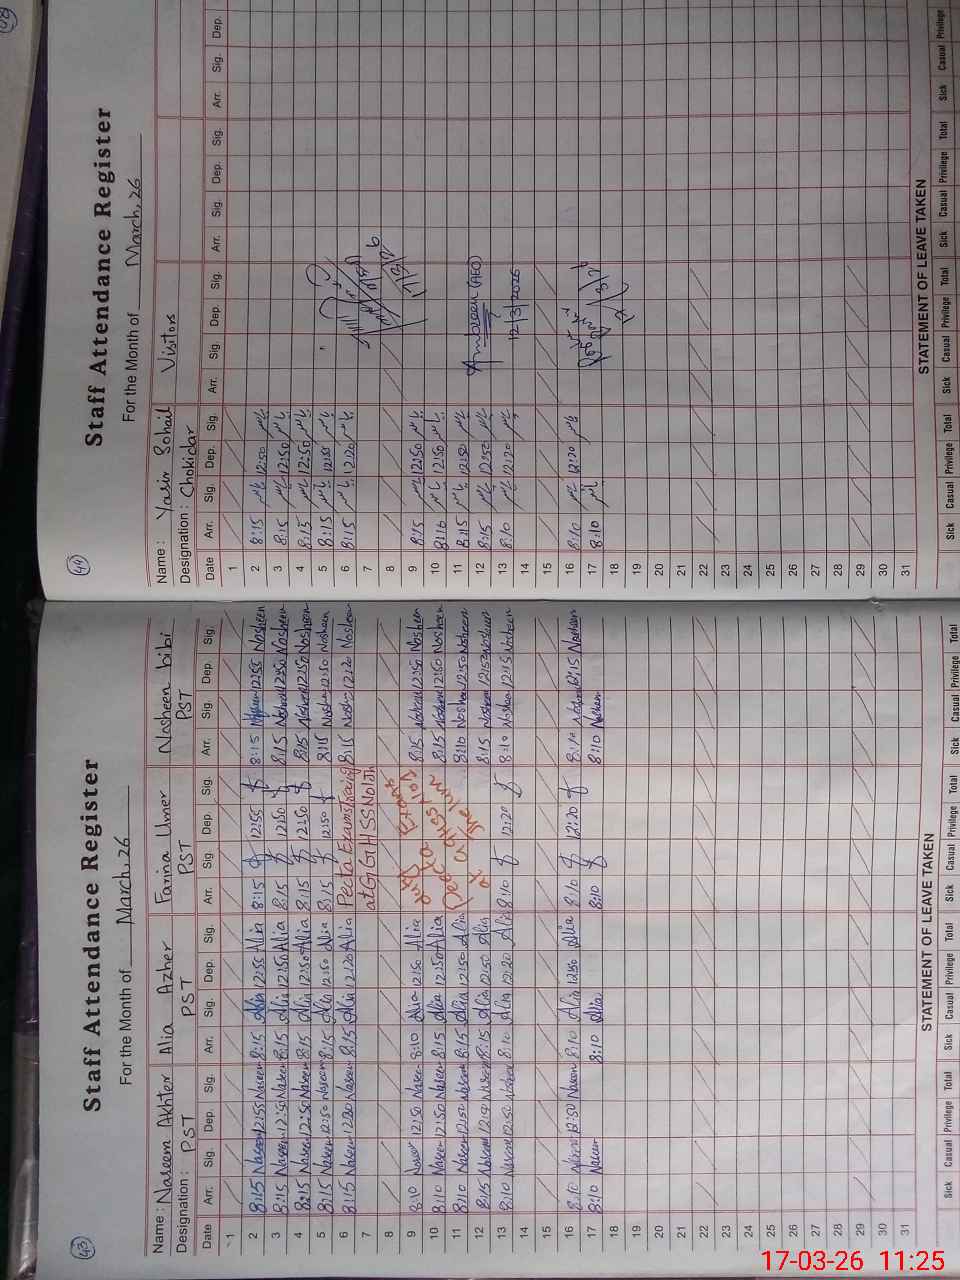 43
Staff Attendance Register
For the Month of March, 26
Name : Naseem Akhter Alia Azher Farina Umer Nosheen bibi
Designation : PST PST PST PST
Date Arr. Sig. Dep. Sig. Arr. Sig. Dep. Sig. Arr. Sig Dep. Sig. Arr. Sig. Dep. Sig.
1
2 8:15 Naseem 12:55 Naseem 8:15 Alia 12:55 Alia 8:15 12:55 8:15 12:55 Nosheen
3 8:15 Naseem 12:50 Naseem 8:15 Alia 12:50 Alia 8:15 12:50 8:15 Nosheen 12:50 Nosheen
4 8:15 Naseem 12:50 Naseem 8:15 Alia 12:50 Alia 8:15 12:50 8:15 Nosheen 12:50 Nosheen
5 8:15 Naseem 12:50 Naseem 8:15 Alia 12:50 Alia 8:15 12:50 8:15 Nosheen 12:50 Nosheen
6 8:15 Naseem 12:20 Naseem 8:15 Alia 12:20 Alia Pecta Exams 8:15 Nosheen 12:20 Nosheen
7 at GGHSS No
8
9 8:10 Naseem 12:50 Naseem 8:10 Alia 12:50 Alia Duty Exams 8:15 Nosheen 12:50 Nosheen
10 8:10 Naseem 12:50 Naseem 8:15 Alia 12:50 Alia 8:15 Nosheen 12:50 Nosheen
11 8:10 Naseem 12:50 Naseem 8:15 Alia 12:50 Alia at Jhelum 8:10 Nosheen 12:50 Nosheen
12 8:15 Naseem 12:50 Naseem 8:15 Alia 12:50 Alia 8:15 Nosheen 12:50 Nosheen
13 8:10 Naseem 12:50 Naseem 8:10 Alia 12:20 Alia 8:10 12:20 8:10 Nosheen 12:15 Nosheen
14
15
16 8:10 Naseem 12:50 Naseem 8:10 Alia 12:50 Alia 8:10 12:20 8:10 Nosheen 12:15 Nosheen
17 8:10 Naseem 8:10 Alia 8:10 8:10 Nosheen
18
19
20
21
22
23
24
25
26
27
28
29
30
31
STATEMENT OF LEAVE TAKEN
Sick Casual Privilege Total Sick Casual Privilege Total Sick Casual Privilege Total Sick Casual Privilege Total
44
Staff Attendance Register
For the Month of March, 26
Name : Yasir Sohail Visitors
Designation : Chokidar
Date Arr. Sig. Dep. Sig. Arr. Sig. Dep. Sig. Arr. Sig. Dep. Sig. Arr. Sig. Dep.
1
2 8:15 یاسر 12:50 یاسر
3 8:15 یاسر 12:50 یاسر
4 8:15 یاسر 12:50 یاسر
5 8:15 یاسر 12:50 یاسر
6 8:15 یاسر 12:20 یاسر
7
8
9 8:15 یاسر 12:50 یاسر
10 8:16 یاسر 12:50 یاسر
11 8:15 یاسر 12:50 یاسر
12 8:15 یاسر 12:50 یاسر Ambreen (AEO)
13 8:10 یاسر 12:20 یاسر
14 12/3/2026
15
16 8:10 یاسر 12:20 یاسر
17 8:10 یاسر
18
19
20
21
22
23
24
25
26
27
28
29
30
31
STATEMENT OF LEAVE TAKEN
Sick Casual Privilege Total Sick Casual Privilege Total Sick Casual Privilege Total Sick Casual Privilege
17-03-26 11:25